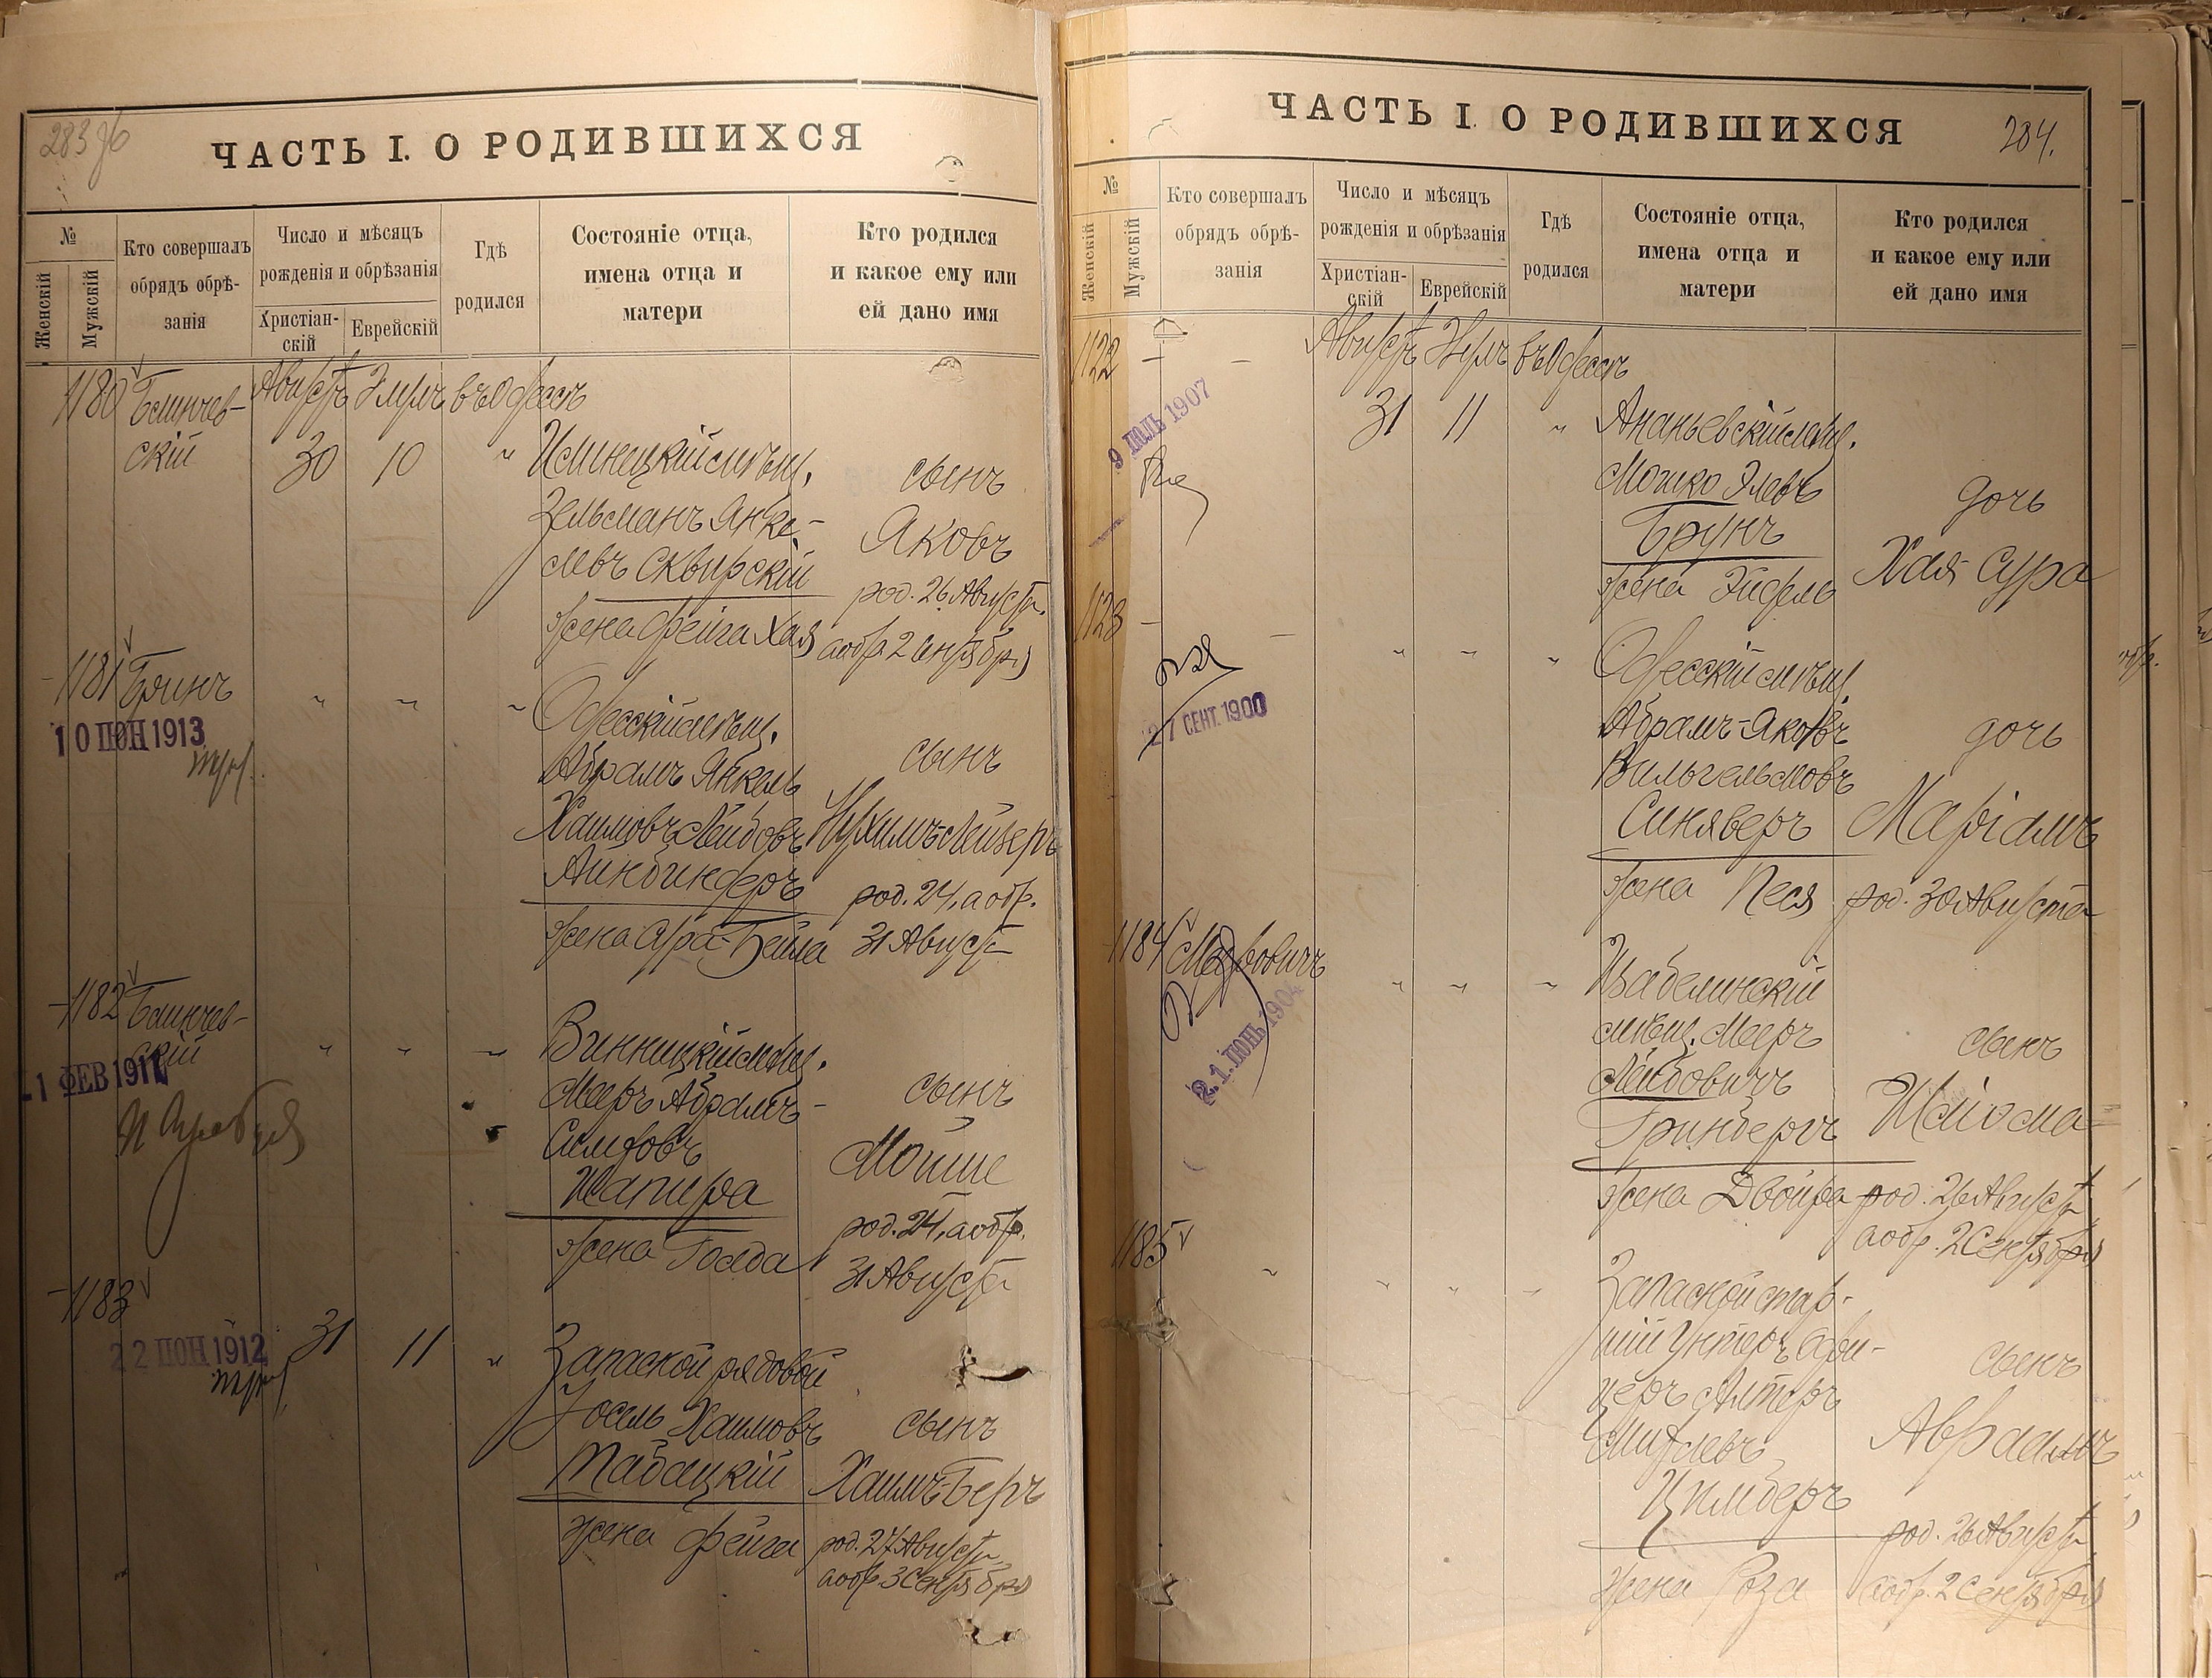 283 об
ЧАСТЬ I. О РОДИВШИХСЯ
№
Женскій
Мужскій
Кто совершалъ
обрядъ обрѣ-
занія
Число и мѣсяцъ
рожденія и обрѣзанія
Христіан-
скій
Еврейскій
Гдѣ
родился
Состояніе отца,
имена отца и
матери
Кто родился
и какое ему или
ей дано имя
1180
Августъ Элулъ въ Одессѣ
скій
30 10 " Илинецкій мѣщ.
Зельманъ Янке-
левъ Сквирскій
жена Фейга Хая
сынъ
Яковъ
род. 26 Августа,
а обр. 2 Сентября
1181 Гринъ
10 ІЮН 1913
" " " Одесскій мѣщ.
Абрамъ Янкель
Хаимовъ Лейбовъ
Айнбиндеръ
жена Сура-Бейла
сынъ
Нухимъ Лейзеръ
род. 24, а обр.
31 Августа
1182
скій
1 ФЕВ 1911
" " " Винницкій мѣщ.
Мееръ Абрамъ-
Симховъ
Шапира
жена Голда
сынъ
Мойше
род. 24, а обр.
31 Августа
1183
22 ІЮН 1912
31 11 " Запасной рядовой
Іосель Хаимовъ
Табацкій
жена Фейга
сынъ
Хаимъ-Беръ
род. 27 Августа,
а обр. 3 Сентября
ЧАСТЬ I. О РОДИВШИХСЯ
284.
№
Женскій
Мужскій
Кто совершалъ
обрядъ обрѣ-
занія
Число и мѣсяцъ
рожденія и обрѣзанія
Христіан-
скій
Еврейскій
Гдѣ
родился
Состояніе отца,
имена отца и
матери
Кто родился
и какое ему или
ей дано имя
1122 — —
Августъ Элулъ въ Одессѣ
9 ІЮЛЬ 1907
31 11 " Ананьевскій мѣщ.
Мошко Элевъ
Брунъ
жена Эйдель
дочь
Хая Сура
1123 — —
27 СЕНТ. 1900
" " " Одесскій мѣщ.
Абрамъ-Яковъ
Вильгельмовъ
Синяверъ
жена Песя
дочь
Маріамъ
род. 30 Августа
1184
21 ІЮНЬ 1904
" " "
мѣщ. Мееръ
Лейбовичъ
Гринбергъ
жена Двойра
сынъ
Шлiома
род. 26 Августа,
а обр. 2 Сентября
1185
" " " " Запасной стар-
шій Унтеръ Офи-
церъ Алтеръ
Цимберъ
жена Роза
сынъ
Авраамъ
род. 26 Августа,
а обр. 2 Сентября